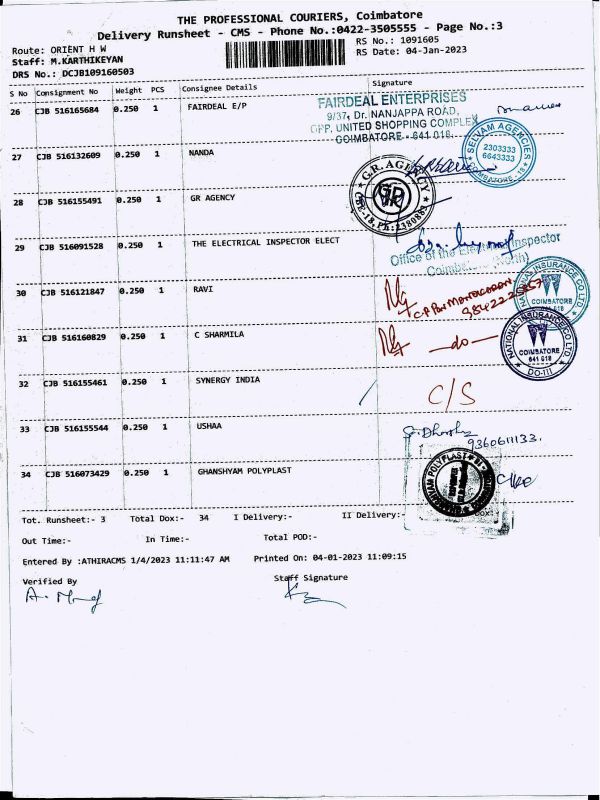 THE PROFESSIONAL COURIERS, Coimbatore
Delivery Runsheet - CMS - Phone No.:0422-3505555 - Page No.:3
Route: ORIENT H W
RS No.: 1091605
Staff: M.KARTHIKEYAN
RS Date: 04-Jan-2023
DRS No.: DCJB109160503
S No Consignment No Weight PCS Consignee Details Signature
26 CJB 516165684 0.250 1 FAIRDEAL E/P
FAIRDEAL ENTERPRISES
9/37, Dr. NANJAPPA ROAD,
OPP. UNITED SHOPPING COMPLEX
COIMBATORE - 641 018.
27 CJB 516132609 0.250 1 NANDA
SELVAM AGENCIES
2303333
6643333
COIMBATORE - 18
28 CJB 516155491 0.250 1 GR AGENCY
G.R. AGENCY
GR
CBE-18, Ph: 2380883
29 CJB 516091528 0.250 1 THE ELECTRICAL INSPECTOR ELECT
Office of the Electrical Inspector
Coimbatore (North)
30 CJB 516121847 0.250 1 RAVI
NATIONAL INSURANCE CO LTD
COIMBATORE
31 CJB 516160829 0.250 1 C SHARMILA
-do-
NATIONAL INSURANCE CO LTD
COIMBATORE
641 018
DO-III
32 CJB 516155461 0.250 1 SYNERGY INDIA
C/S
33 CJB 516155544 0.250 1 USHAA
9360611133.
34 CJB 516073429 0.250 1 GHANSHYAM POLYPLAST
GHANSHYAM POLYPLAST
Tot. Runsheet:- 3 Total Dox:- 34 I Delivery:- II Delivery:-
Out Time:- In Time:- Total POD:-
Entered By :ATHIRACMS 1/4/2023 11:11:47 AM Printed On: 04-01-2023 11:09:15
Verified By Staff Signature